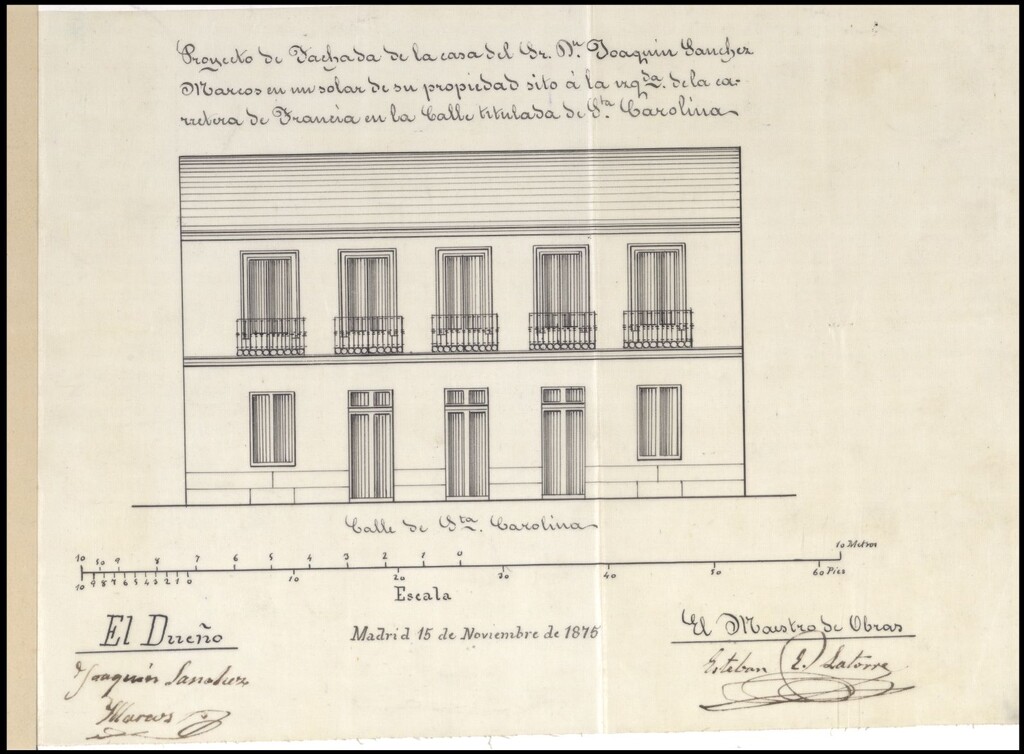 Proyecto de Fachada de la casa del Sr. Dn. Joaquin Sanchez
Marcos en un solar de su propiedad sito á la izqda. de la ca-
rretera de Francia en la Calle titulada de Sta. Carolina
Calle de Sta. Carolina
10 9 7 6 5 4 3 2 1 0
10 Metros
10 9 8 7 6 5 4 3 2 1 0 10 20 30 40 50 60 Pies
Escala
El Dueño
Madrid 15 de Noviembre de 1875
El Maestro de Obras
Joaquin Sanchez
Marcos
Esteban Latorre